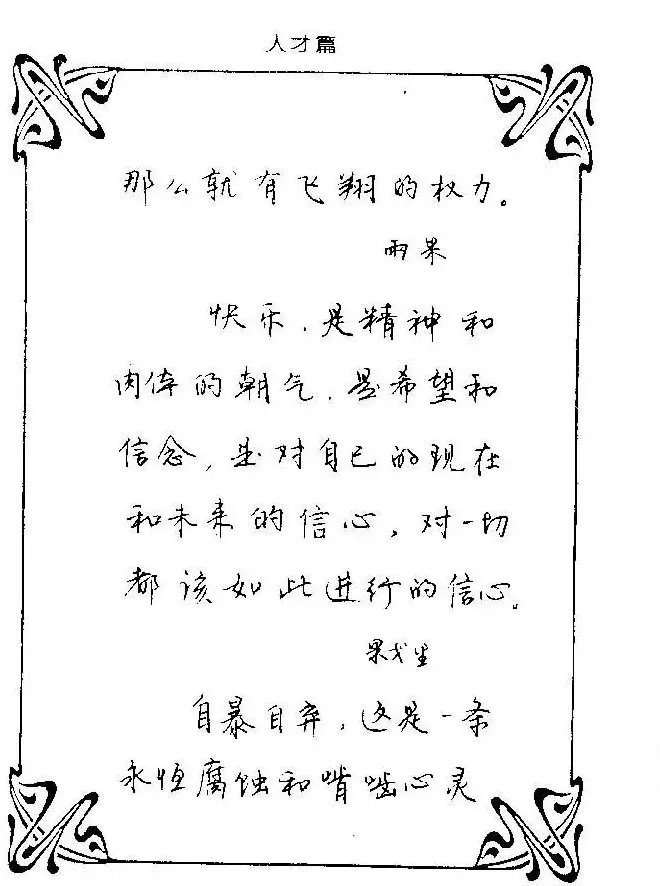 人才篇
那么就有飞翔的权力。
雨果
快乐，是精神和
肉体的朝气，是希望和
信念，是对自己的现在
和未来的信心，对一切
都该如此进行的信心。
果戈里
自暴自弃，这是一条
永恒腐蚀和啃噬心灵